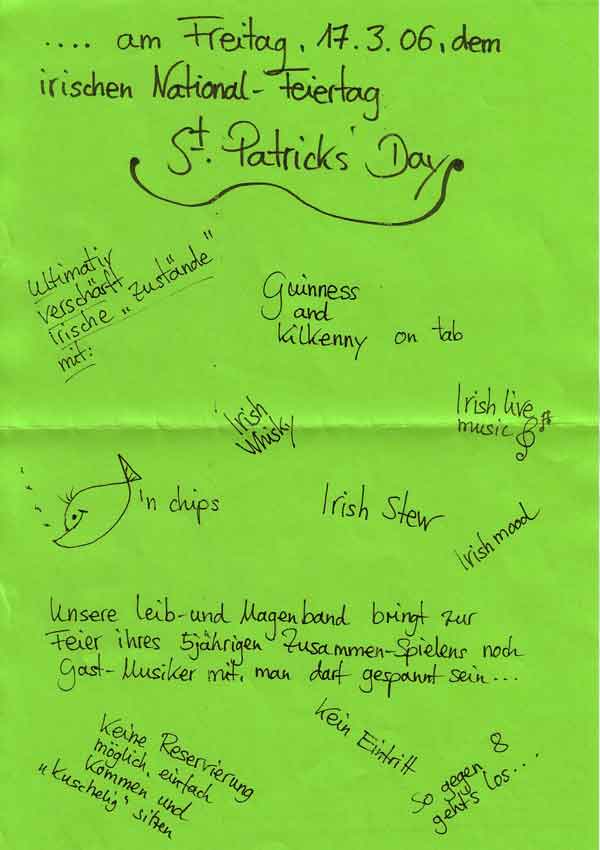 .... am Freitag, 17.3.06, dem
irischen National-Feiertag
St. Patricks' Day
Ultimativ
verschärft
irische „Zustände"
mit:
Guinness
and
Kilkenny on tab
Irish
Whisky
Irish live
music
'n chips
Irish Stew
Irish mood
Unsere Leib-und Magenband bringt zur
Feier ihres 5jährigen Zusammen-Spielens noch
Gast-Musiker mit, man darf gespannt sein...
Keine Reservierung
möglich, einfach
kommen und
„kuschelig" sitzen
Kein Eintritt
So gegen 8
geht's los....